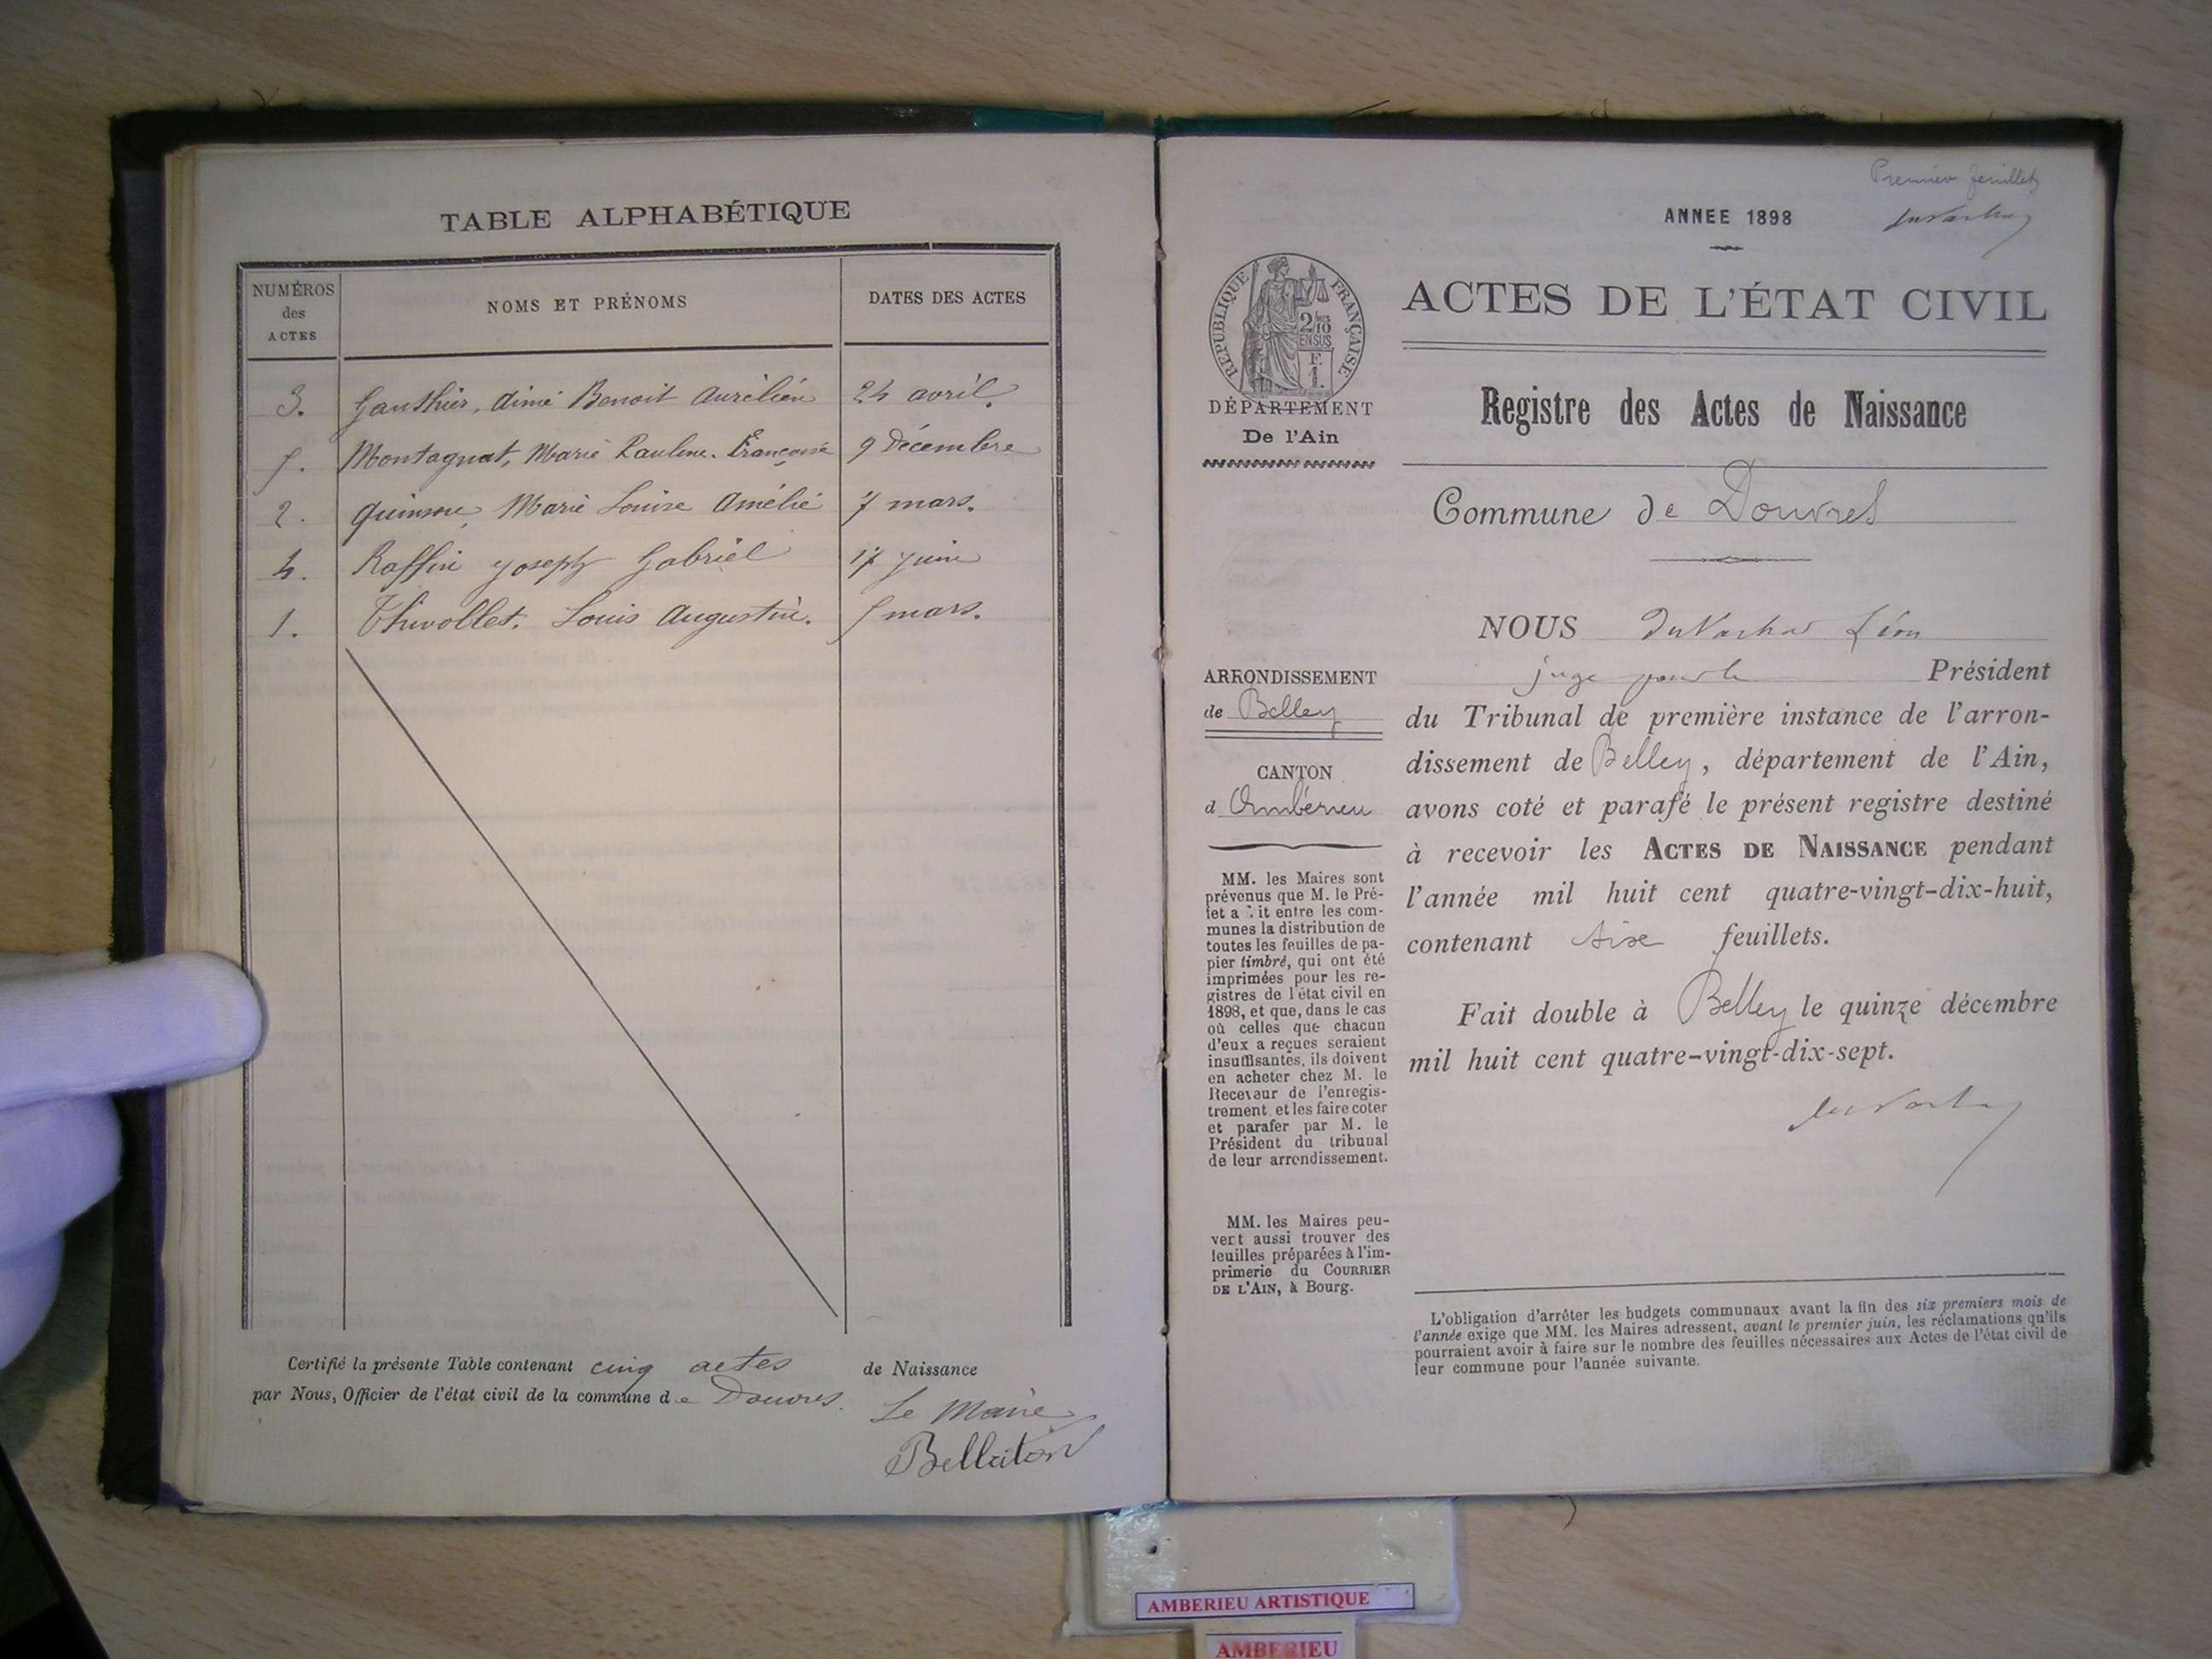 TABLE ALPHABÉTIQUE
NUMÉROS des ACTES
NOMS ET PRÉNOMS
DATES DES ACTES
3. Gauthier, Aimé Benoit Aurélien 24 avril.
5. Montagnat, Marie Pauline. Françoise 9 Décembre
2. Quinson, Marie Louise Amélie 7 mars.
4. Raffin Joseph Gabriel 17 Juin
1. Thivollet. Louis Augustin. 5 mars.
Certifié la présente Table contenant cinq actes de Naissance
par Nous, Officier de l'état civil de la commune de Douvres.
Le Maire
Bellaton
Premier feuillet
ANNEE 1898
RÉPUBLIQUE FRANÇAISE
2/10
EN SUS
F.
1.
ACTES DE L'ÉTAT CIVIL
DÉPARTEMENT
De l'Ain
Registre des Actes de Naissance
Commune de Douvres
ARRONDISSEMENT
de Belley
CANTON
d'Ambérieu
MM. les Maires sont
prévenus que M. le Pré-
fet a fait entre les com-
munes la distribution de
toutes les feuilles de pa-
pier timbré, qui ont été
imprimées pour les re-
gistres de l'état civil en
1898, et que, dans le cas
où celles que chacun
d'eux a reçues seraient
insuffisantes, ils doivent
en acheter chez M. le
Receveur de l'enregis-
trement et les faire coter
et parafer par M. le
Président du tribunal
de leur arrondissement.
MM. les Maires peu-
vent aussi trouver des
feuilles préparées à l'im-
primerie du COURRIER
DE L'AIN, à Bourg.
NOUS Léon
juge pour le Président
du Tribunal de première instance de l'arron-
dissement de Belley, département de l'Ain,
avons coté et parafé le présent registre destiné
à recevoir les ACTES DE NAISSANCE pendant
l'année mil huit cent quatre-vingt-dix-huit,
contenant six feuillets.
Fait double à Belley le quinze décembre
mil huit cent quatre-vingt-dix-sept.
L'obligation d'arrêter les budgets communaux avant la fin des six premiers mois de
l'année exige que MM. les Maires adressent, avant le premier juin, les réclamations qu'ils
pourraient avoir à faire sur le nombre des feuilles nécessaires aux Actes de l'état civil de
leur commune pour l'année suivante.
AMBERIEU ARTISTIQUE
AMBERIEU